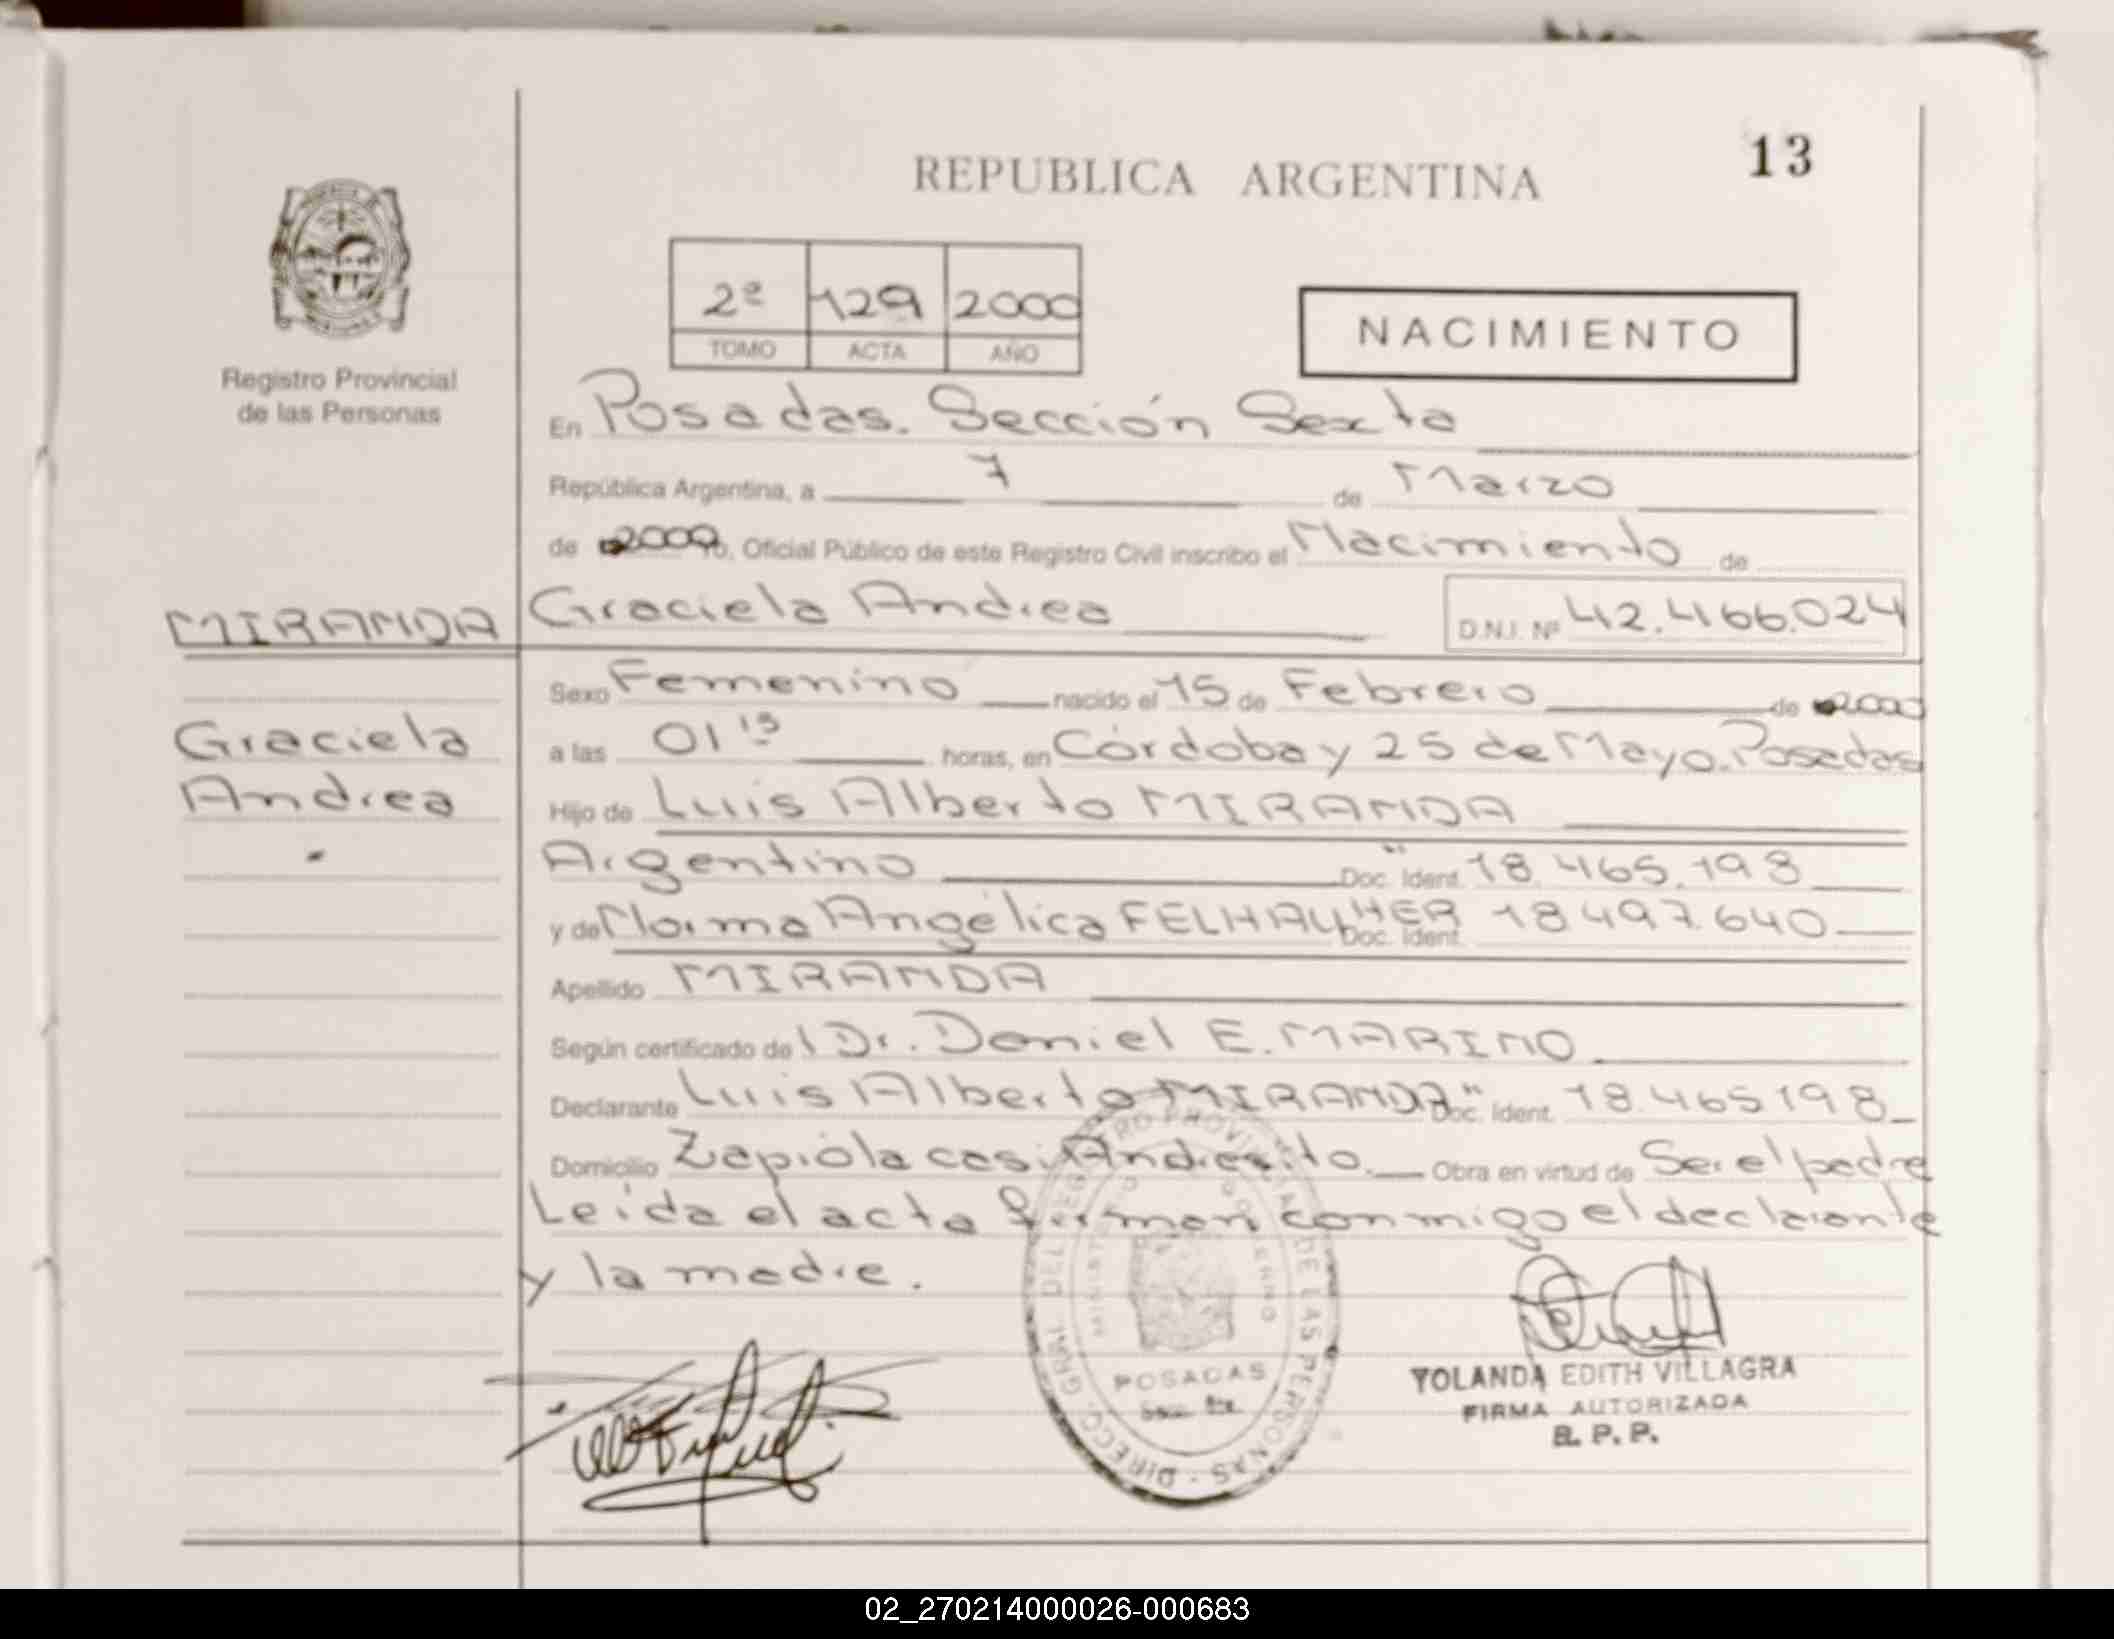 13
REPUBLICA ARGENTINA
2º 129 2000
TOMO ACTA AÑO
NACIMIENTO
Registro Provincial
de las Personas
En Posadas. Sección Sexta
República Argentina, a 7 de Marzo
de 2000 Yo, Oficial Público de este Registro Civil inscribo el Nacimiento de
MIRANDA Graciela Andrea D.N.I. Nº 42.466.024
Sexo Femenino nacido el 15 de Febrero de 2000
Graciela
a las 01 15 horas, en Córdoba y 25 de Mayo. Posadas
Andrea
Hijo de Luis Alberto MIRANDA
Argentino Doc. Ident. 18.465.198
y de Norma Angélica FELHAUHER Doc. Ident. 18.497.640
Apellido MIRANDA
Según certificado de Dr. Daniel E. MARINO
Declarante Luis Alberto MIRANDA Doc. Ident. 18.465198
Domicilio Zapiola casi Andresito. Obra en virtud de Ser el padre
Leida el acta firman conmigo el declarante
y la madre.
DIRECC. GRAL. DEL REGISTRO PROVINCIAL DE LAS PERSONAS
MINISTERIO GOBIERNO
POSADAS
YOLANDA EDITH VILLAGRA
FIRMA AUTORIZADA
R. P. P.
02_270214000026-000683